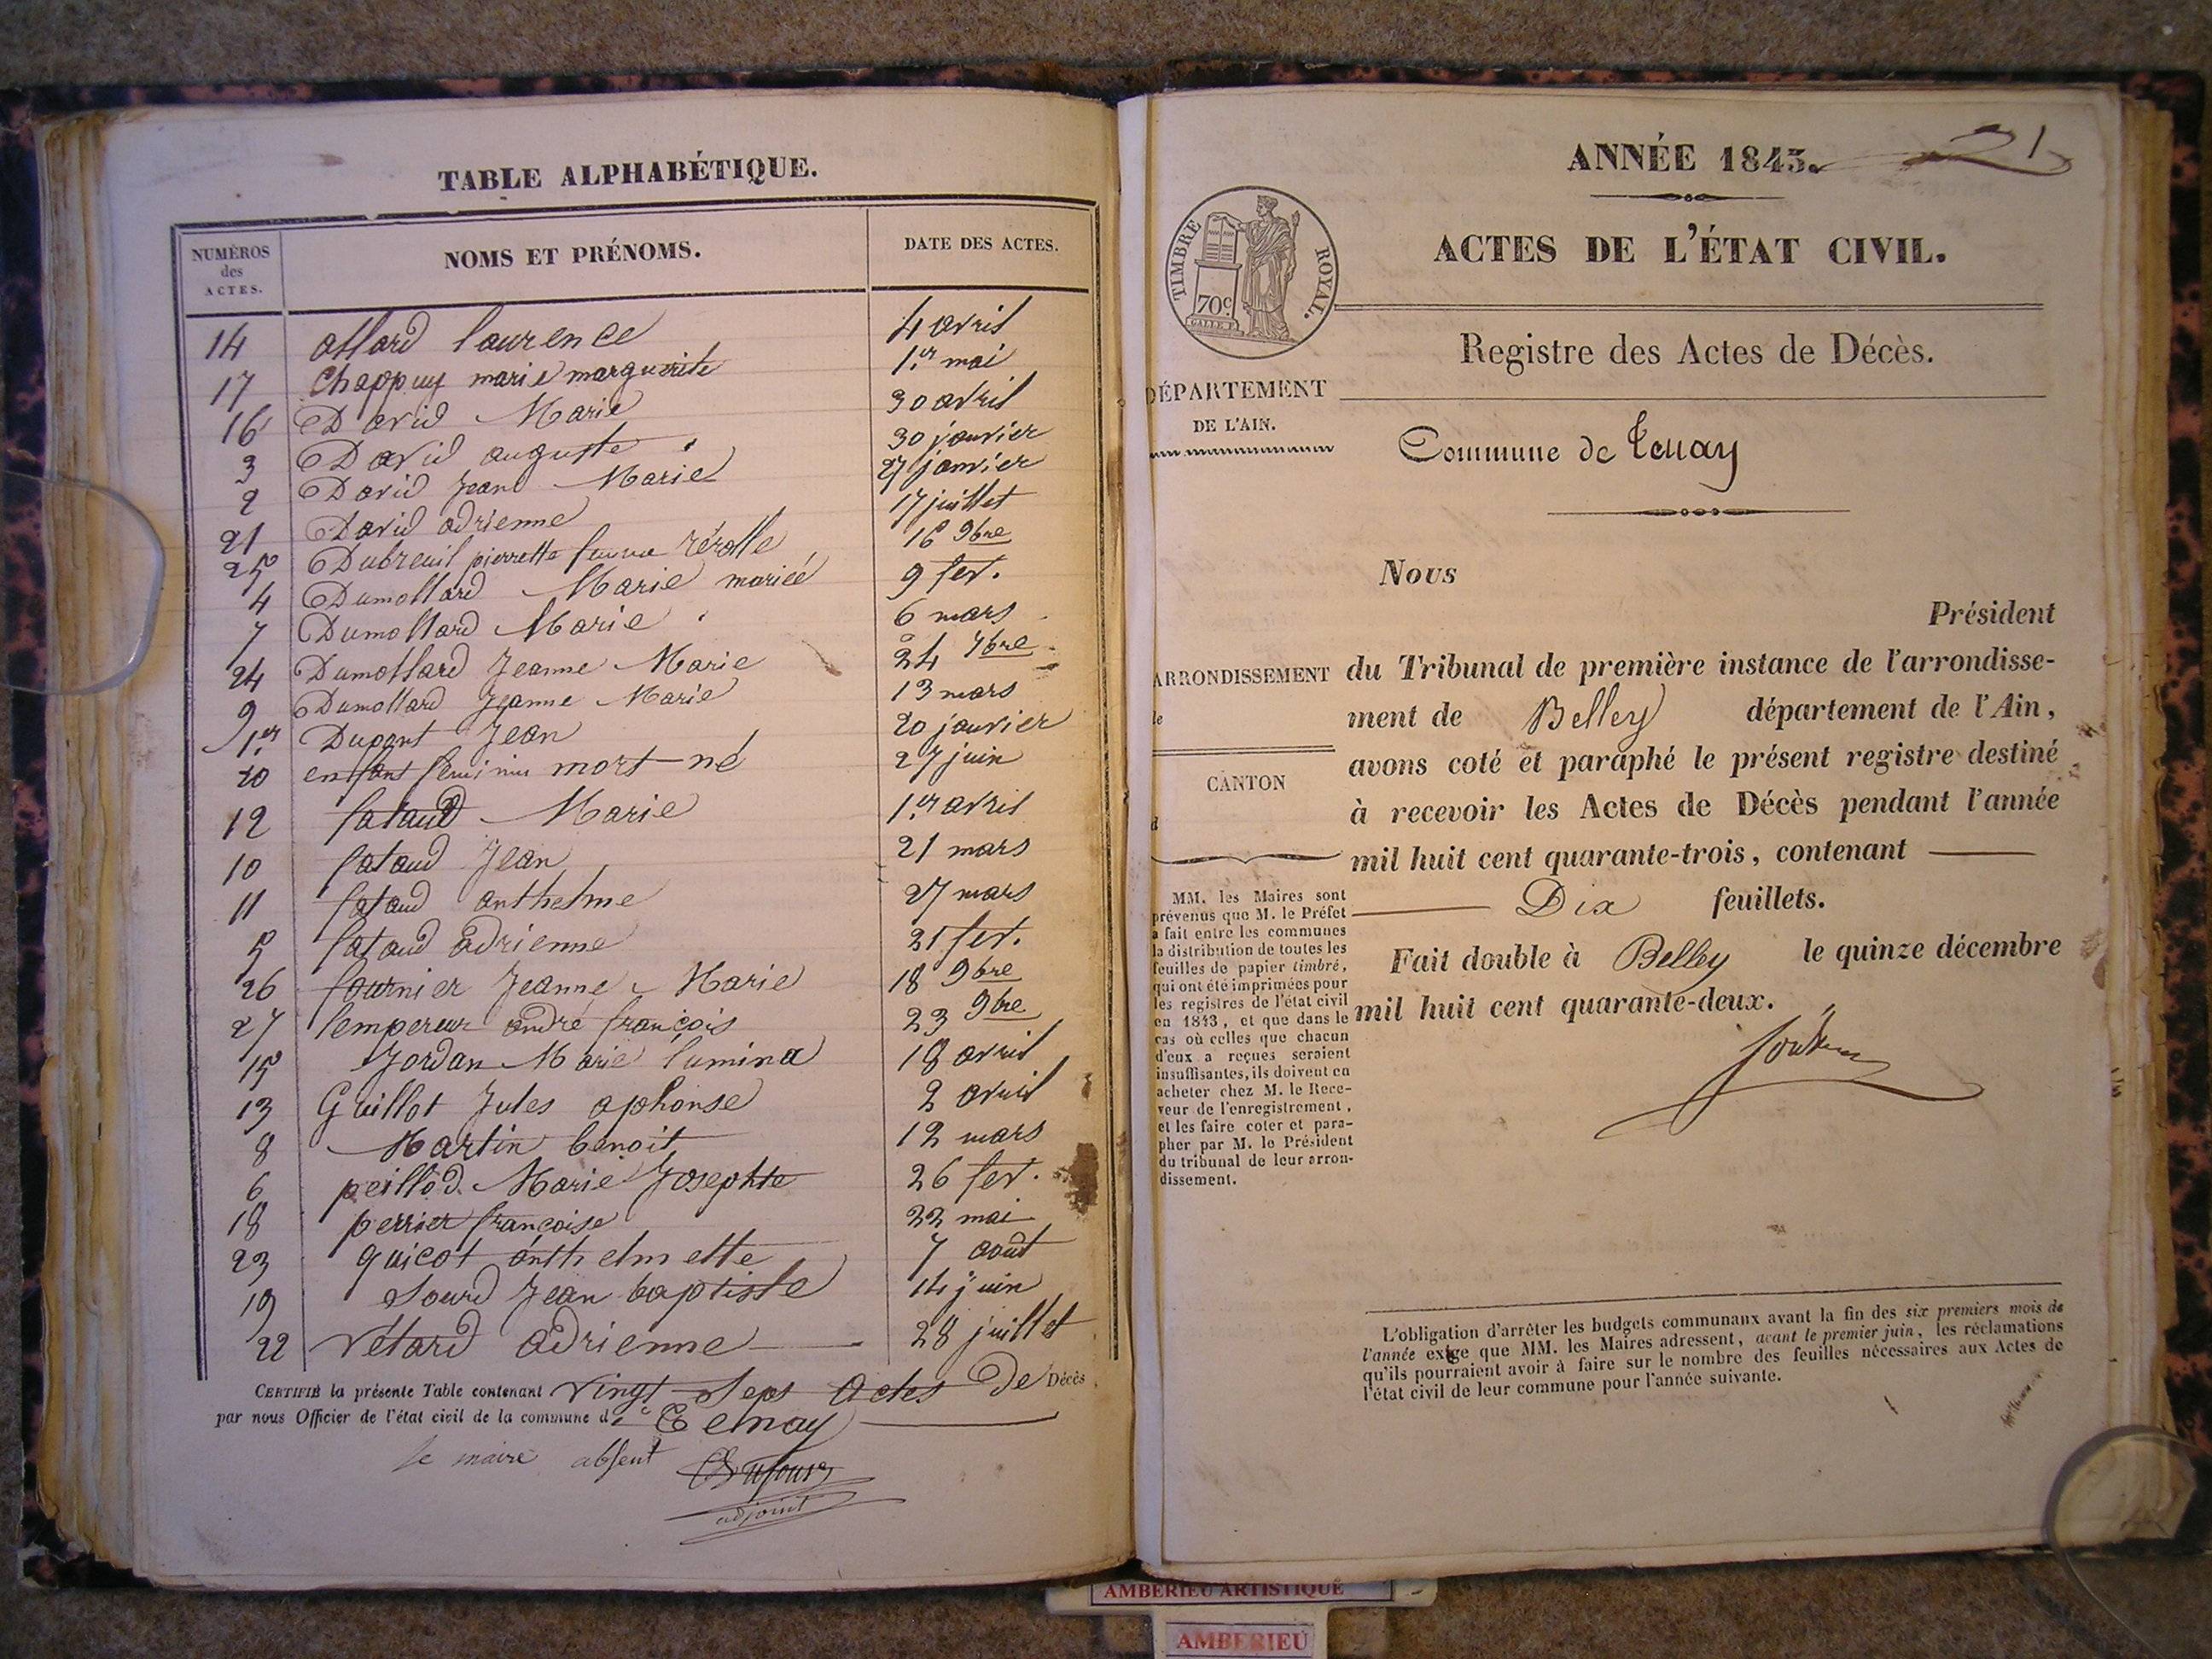 TABLE ALPHABÉTIQUE.
NUMÉROS des ACTES. NOMS ET PRÉNOMS. DATE DES ACTES.
14 allard laurence 4 avril
17 Chappuy marie marguerite 1.er mai
16 David Marie 30 avril
3 David auguste 30 janvier
2 David Jean Marie 27 janvier
21 David adrienne 17 juillet
25 Dubreuil pierrette femme Rérolle 16 9bre
4 Dumollard Marie mariée 9 fev.
7 Dumollard Marie 6 mars
24 Dumollard Jeanne Marie 24 7bre
9 Dumollard Jeanne Marie 13 mars
1.er Dupont Jean 20 janvier
20 enfant féminin mort-né 27 juin
12 fataud Marie 1.er avril
10 fataud Jean 21 mars
11 fataud anthelme 27 mars
5 fataud adrienne 21 fev.
26 fournier Jeanne Marie 18 9bre
27 lempereur andré françois 23 9bre
15 Jordan Marie lumina 18 avril
13 Guillot Jules aphonse 2 avril
8 Martin benoit 12 mars
6 peillod Marie Josephte 26 fev.
18 perrier françoise 22 mai
23 quicot anthelmette 7 août
19 Sourd Jean baptiste 14 juin
22 Vétard adrienne 28 juillet
CERTIFIÉ la présente Table contenant vingt Sept Actes De Décès
par nous Officier de l'état civil de la commune de Tenay
le maire absent Dufour
adjoint
ANNÉE 1843. 21
ACTES DE L'ÉTAT CIVIL.
TIMBRE ROYAL.
70c
Registre des Actes de Décès.
DÉPARTEMENT
DE L'AIN.
Commune de Tenay
Nous
Président
ARRONDISSEMENT
de
CANTON
d
du Tribunal de première instance de l'arrondisse-
ment de Belley département de l'Ain,
avons coté et paraphé le présent registre destiné
à recevoir les Actes de Décès pendant l'année
mil huit cent quarante-trois, contenant
Dix feuillets.
Fait double à Belley le quinze décembre
mil huit cent quarante-deux.
MM. les Maires sont
prévenus que M. le Préfet
a fait entre les communes
la distribution de toutes les
feuilles de papier timbré,
qui ont été imprimées pour
les registres de l'état civil
en 1843, et que dans le
cas où celles que chacun
d'eux a reçues seraient
insuffisantes, ils doivent en
acheter chez M. le Rece-
veur de l'enregistrement,
et les faire coter et para-
pher par M. le Président
du tribunal de leur arron-
dissement.
L'obligation d'arrêter les budgets communaux avant la fin des six premiers mois de
l'année exige que MM. les Maires adressent, avant le premier juin, les réclamations
qu'ils pourraient avoir à faire sur le nombre des feuilles nécessaires aux Actes de
l'état civil de leur commune pour l'année suivante.
AMBERIEU ARTISTIQUE
AMBERIEU